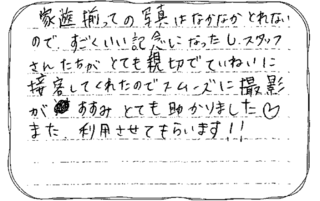 家族揃っての写真はなかなかとれない
ので、すごくいい記念になったし、スタッフ
さんたちがとても親切でていねいに
接客してくれたのでスムーズに撮影
がすすみとても助かりました♡
また、利用させてもらいます!!